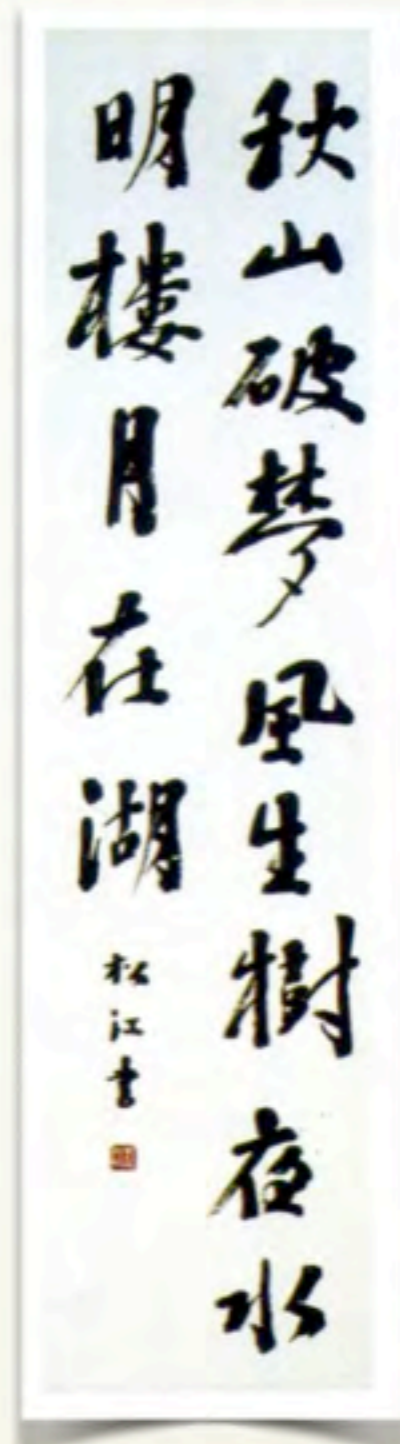 秋山破梦風生樹夜水
明樓月在湖
松江書